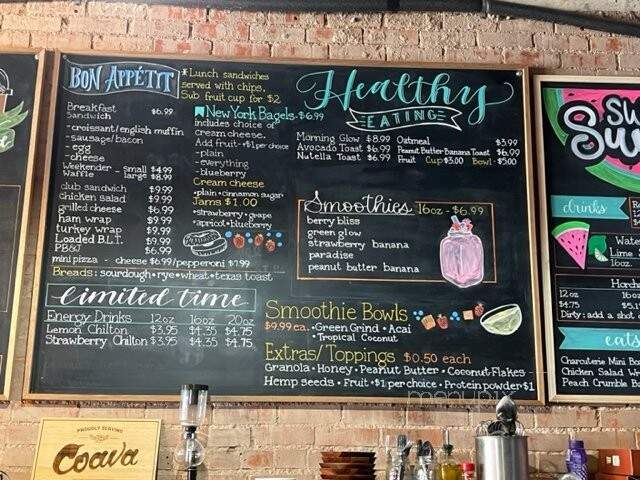 BON APPÉTIT
*Lunch sandwiches
served with chips.
Sub fruit cup for $2
Breakfast
Sandwich $6.99
-croissant/english muffin
-sausage/bacon
-egg
-cheese
Weekender
Waffle - small $4.99
large $8.99
club sandwich $9.99
chicken salad $9.99
grilled cheese $6.99
ham wrap $9.99
turkey wrap $9.99
Loaded B.L.T. $9.99
PB&J $6.99
mini pizza - cheese $6.99/pepperoni $7.99
Breads: sourdough•rye•wheat•texas toast
New York Bagels-$6.99
includes choice of
cream cheese.
Add fruit•+$1 per choice
-plain
-everything
-blueberry
Cream cheese
•plain•cinnamon sugar
Jams $1.00
•strawberry•grape
•apricot•blueberry
limited time
Energy Drinks 12oz 16oz 20oz
Lemon Chilton $3.95 $4.35 $4.75
Strawberry Chilton $3.95 $4.35 $4.75
Healthy
EATING
Morning Glow $8.99
Avocado Toast $6.99
Nutella Toast $6.99
Oatmeal $3.99
Peanut Butter Banana Toast $6.99
Fruit Cup $3.00 Bowl-$5.00
Smoothies 16oz-$6.99
berry bliss
green glow
strawberry banana
paradise
peanut butter banana
Smoothie Bowls
$9.99 ea. •Green Grind •Acai
•Tropical Coconut
Extras/Toppings $0.50 each
Granola•Honey•Peanut Butter•Coconut Flakes-
Hemp seeds•Fruit•+$1 per choice•Protein powder+$1
drinks
Lime
16oz.
12oz
$4.75
Dirty: add a shot
eats
Charcuterie Mini
Chicken Salad
Peach Crumble
PROUDLY SERVING
Coava